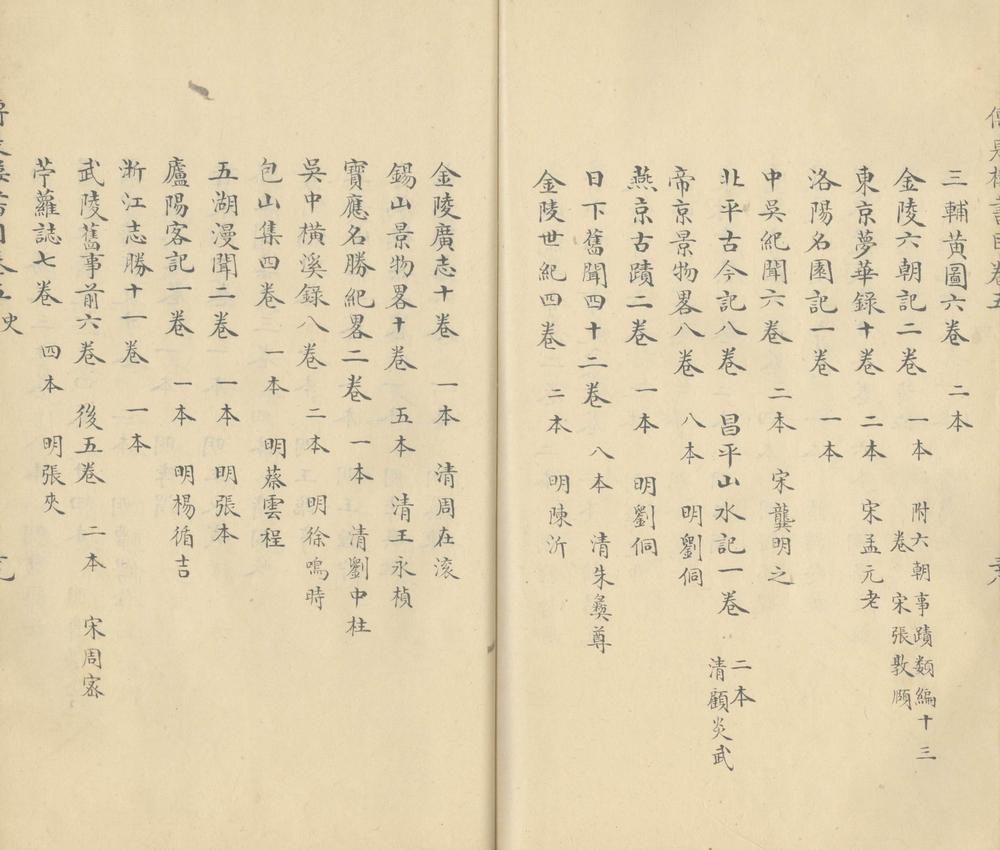 傳是樓書目卷五
三輔黃圖六卷 二本
金陵六朝記二卷 一本 附六朝事蹟類編十三卷 宋張敦頤
東京夢華錄十卷 二本 宋孟元老
洛陽名園記一卷 一本
中吳紀聞六卷 二本 宋龔明之
北平古今記八卷 昌平山水記一卷 二本 清顧炎武
帝京景物畧八卷 八本 明劉侗
燕京古蹟二卷 一本 明劉侗
日下舊聞四十二卷 八本 清朱彝尊
金陵世紀四卷 二本 明陳沂
金陵廣志十卷 一本 清周在浚
錫山景物畧十卷 五本 清王永楨
寶應名勝紀畧二卷 一本 清劉中柱
吳中橫溪錄八卷 二本 明徐鳴時
包山集四卷 一本 明蔡雲程
五湖漫聞二卷 一本 明張本
廬陽客記一卷 一本 明楊循吉
浙江志勝十一卷 一本
武陵舊事前六卷 後五卷 二本 宋周密
苧蘿誌七卷 四本 明張夬